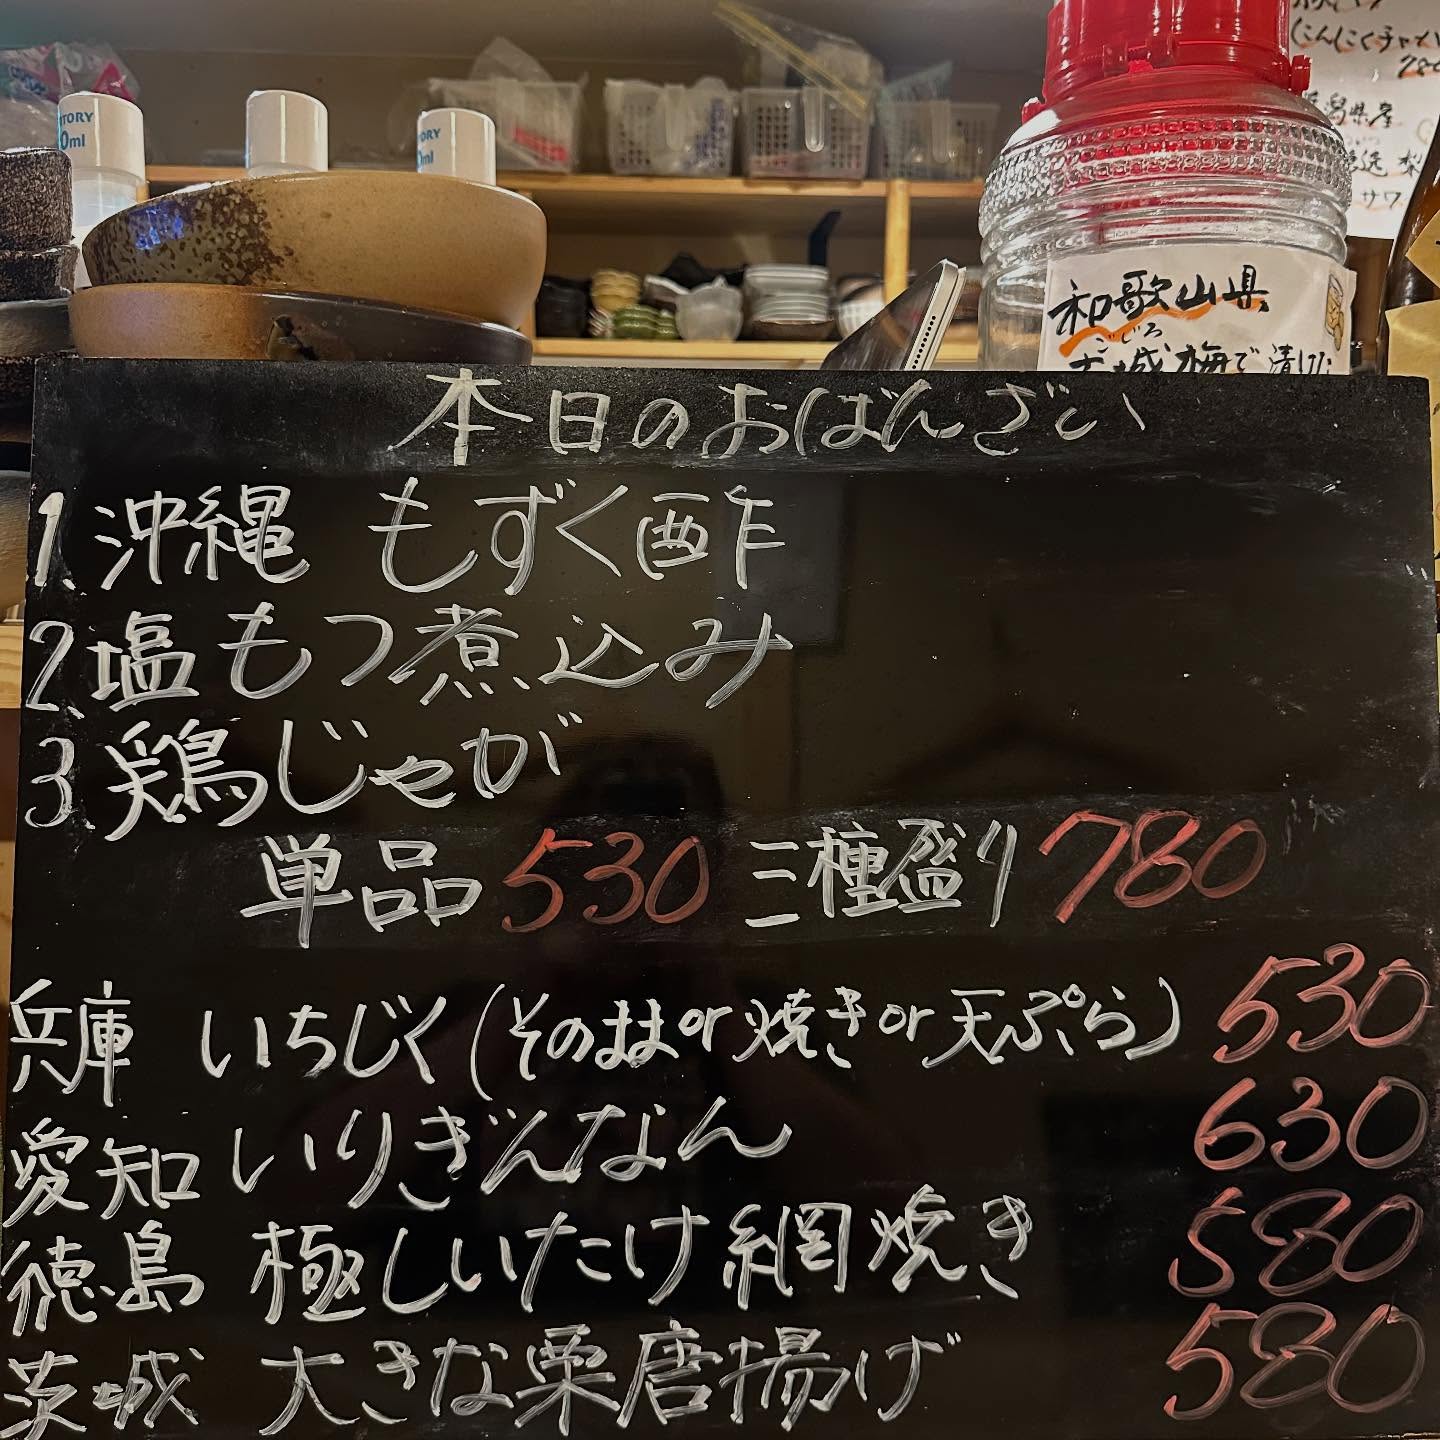 TORY
0ml
TORY
0ml
にんにくチャーハン
780
和歌山県
ごじろ
古城梅で漬けた
サワー
本日のおばんざい
1.沖縄 もずく酢
2.塩もつ煮込み
3.鶏じゃが
単品 530 三種盛り 780
兵庫 いちじく(そのままor焼きor天ぷら) 530
愛知 いりぎんなん 630
徳島 極しいたけ網焼き 580
茨城 大きな栗唐揚げ 580